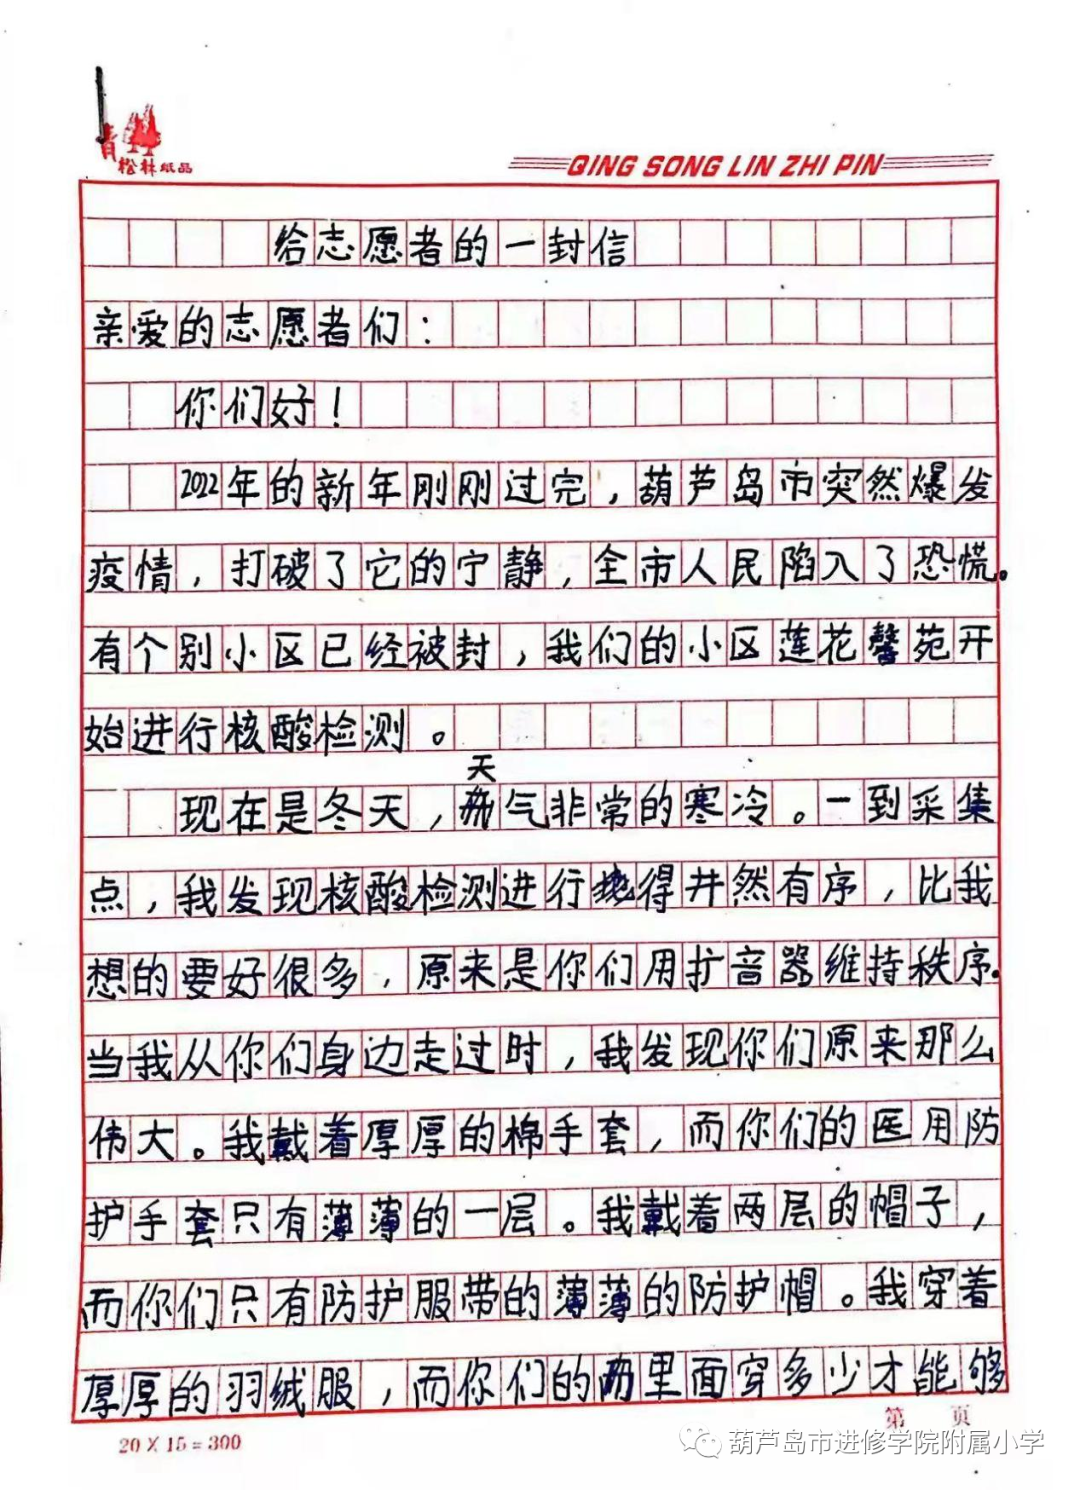 青松林纸品
QING SONG LIN ZHI PIN
给志愿者的一封信
亲爱的志愿者们：
你们好！
2022年的新年刚刚过完，葫芦岛市突然爆发
疫情，打破了它的宁静，全市人民陷入了恐慌。
有个别小区已经被封，我们的小区莲花馨苑开
始进行核酸检测。
现在是冬天，天气非常的寒冷。一到采集
点，我发现核酸检测进行得井然有序，比我
想的要好很多，原来是你们用扩音器维持秩序。
当我从你们身边走过时，我发现你们原来那么
伟大。我戴着厚厚的棉手套，而你们的医用防
护手套只有薄薄的一层。我戴着两层的帽子，
而你们只有防护服带的薄薄的防护帽。我穿着
厚厚的羽绒服，而你们的里面穿多少才能够
第 页
20×15=300
葫芦岛市进修学院附属小学